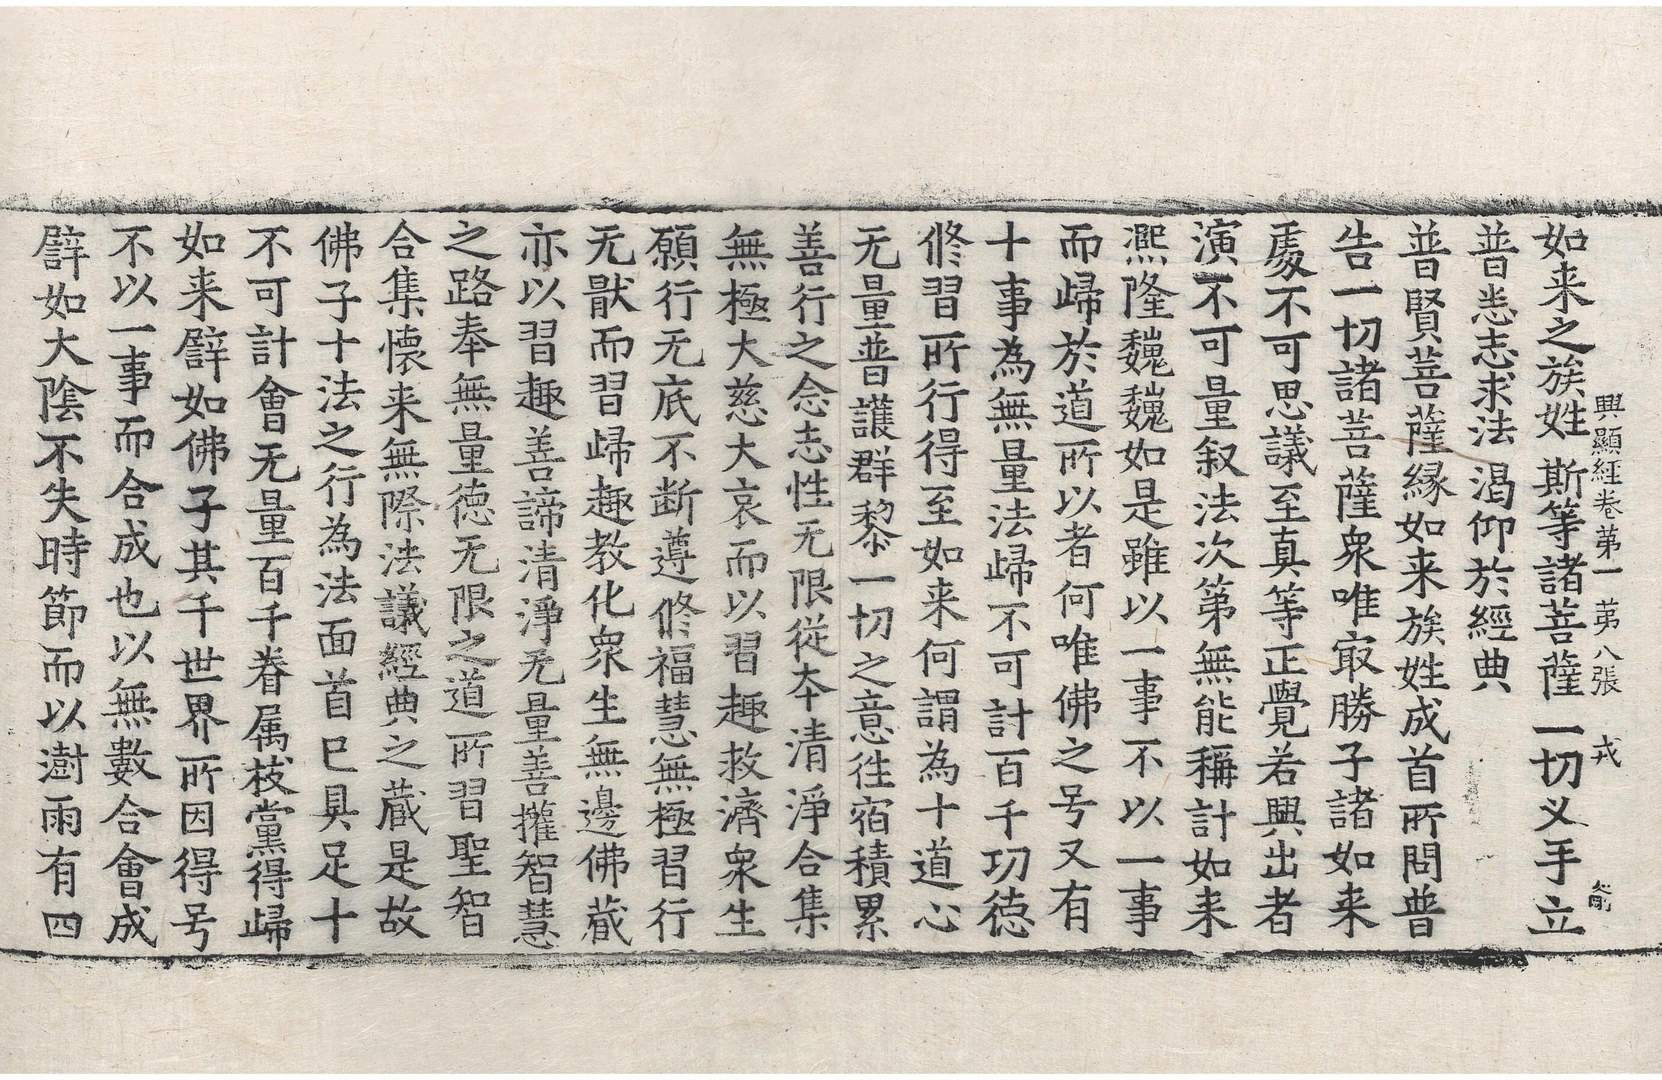 興顯経卷第一 第八張 戎
如来之族姓斯等諸菩薩一切义手立
普恙志求法渇仰於經典
普賢菩薩緣如来族姓成首所問普
告一切諸菩薩衆唯㝡勝子諸如来
處不可思議至真等正覺若興出者
演不可量叙法次第無能稱計如来
凞隆巍巍如是雖以一事不以一事
而歸於道所以者何唯佛之号又有
十事為無量法歸不可計百千功德
修習所行得至如来何謂為十道心
无量普護群黎一切之意徃宿積累
善行之念志性无限從夲清淨合集
無極大慈大哀而以習趣救濟衆生
願行无底不断遵修福慧無極習行
无猒而習歸趣教化衆生無邊佛蔵
亦以習趣善諦清淨无量善㩲智慧
之路奉無量德无限之道所習聖智
合集懷来無際法議經典之蔵是故
佛子十法之行為法面首已具足十
不可計會无量百千眷属枝黨得歸
如来譬如佛子其千世界所因得号
不以一事而合成也以無數合會成
譬如大陰不失時節而以澍雨有四